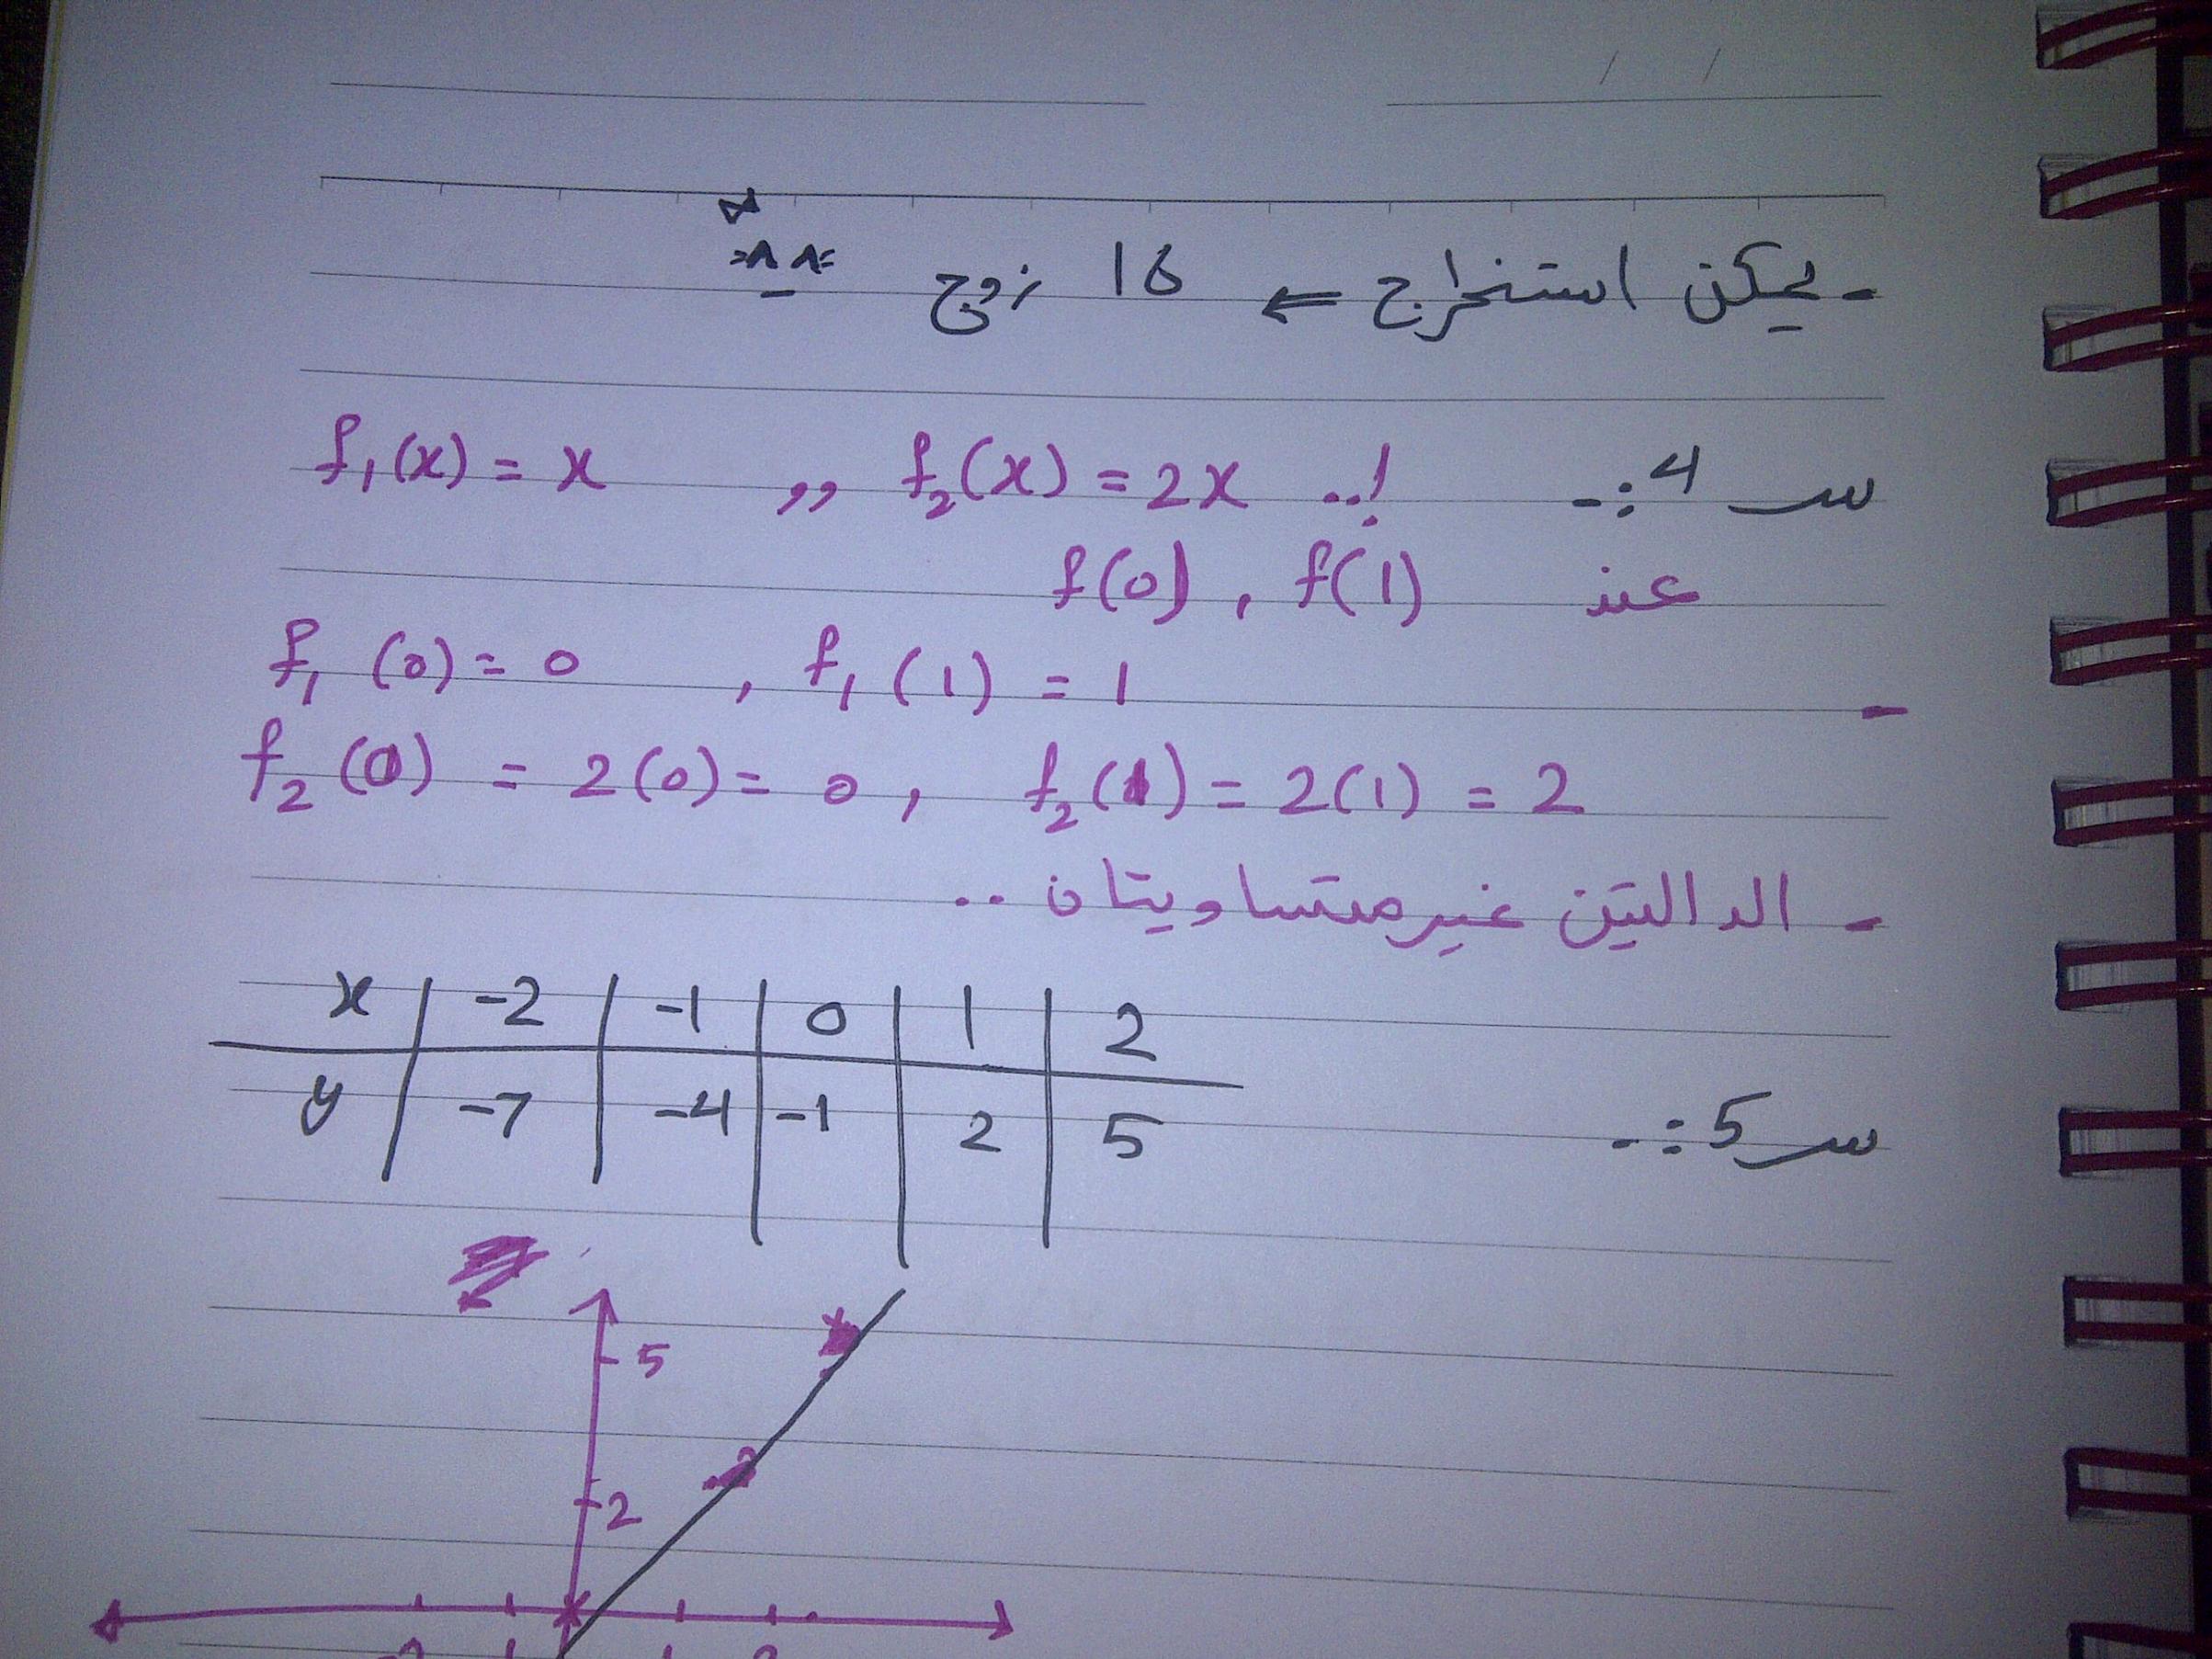 - يمكن استخراج ⇐ 16 زوج =^_^=
س4:- f₁(x) = x ,, f₂(x) = 2x ..!
عند f(0) , f(1)
- f₁(0) = 0 , f₁(1) = 1
f₂(0) = 2(0) = 0 , f₂(1) = 2(1) = 2
- الدالتين غير متساويتان ..
x | -2 | -1 | 0 | 1 | 2
س5:-
y | -7 | -4 | -1 | 2 | 5
5
2